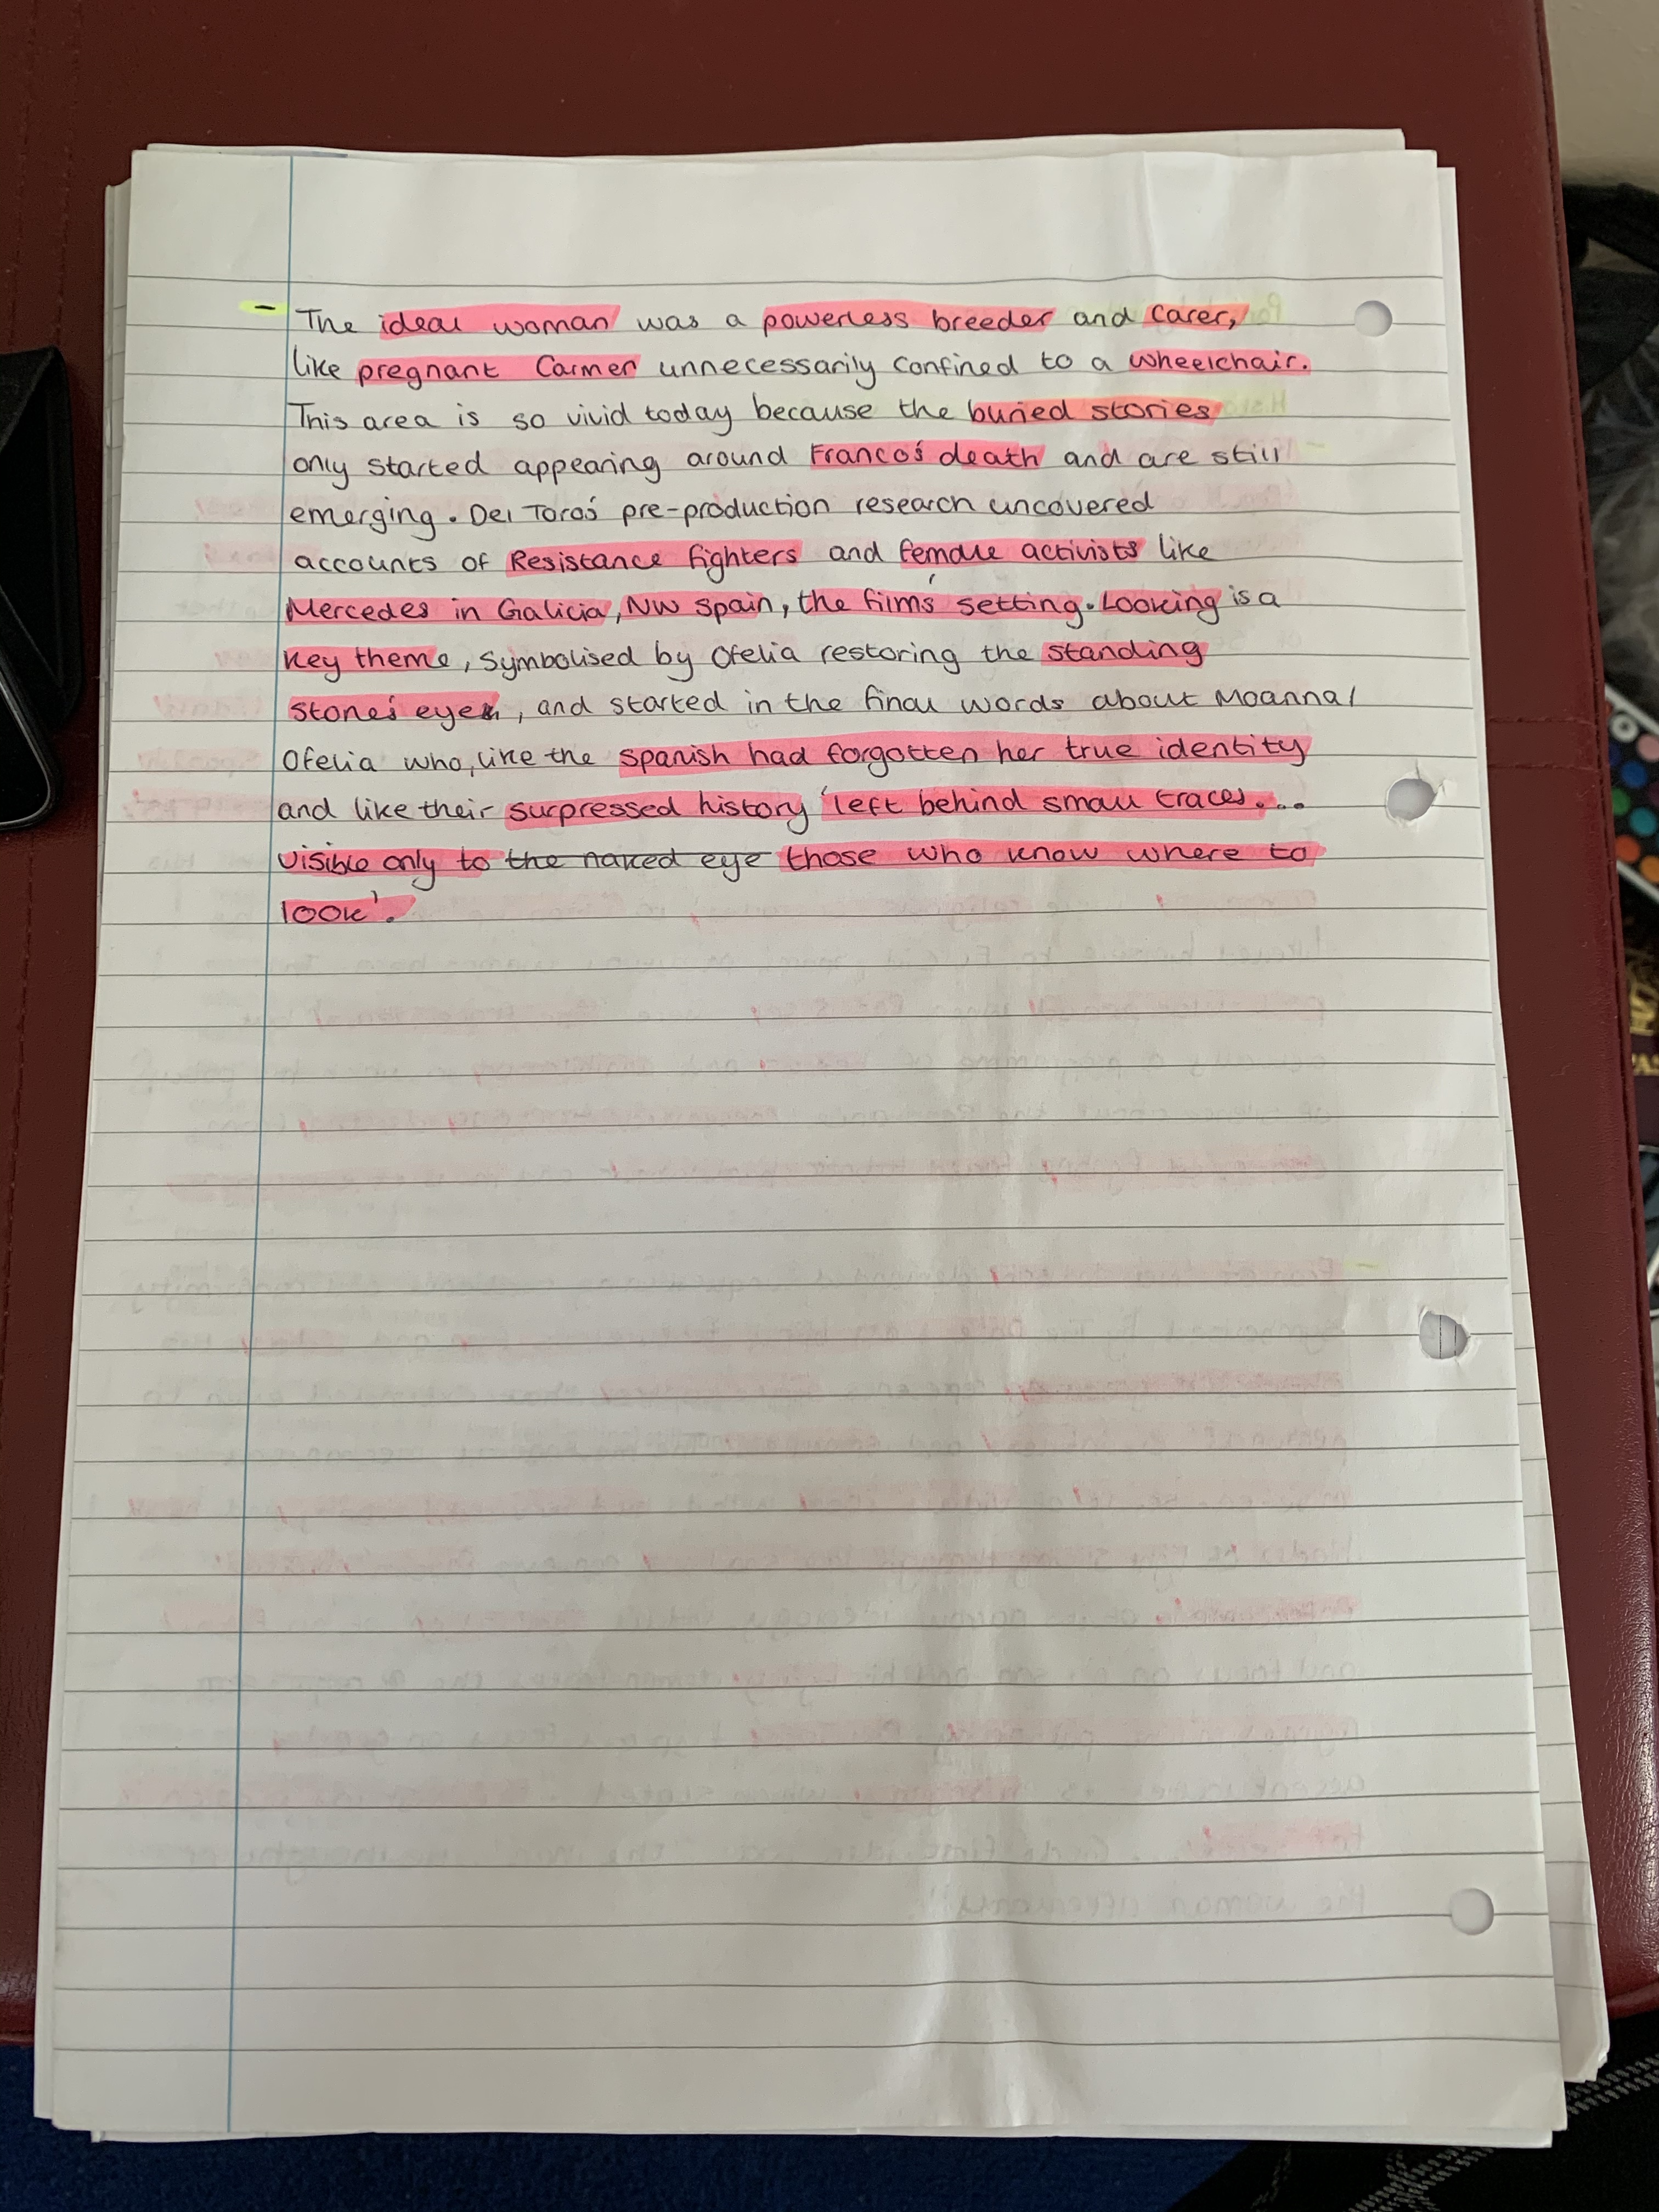 - The ideal woman was a powerless breeder and carer,
like pregnant Carmen unnecessarily confined to a wheelchair.
This area is so vivid today because the buried stories
only started appearing around Franco's death and are still
emerging. Del Toro's pre-production research uncovered
accounts of Resistance fighters and female activists like
Mercedes in Galicia, NW Spain, the film's setting. Looking is a
key theme, symbolised by Ofelia restoring the standing
stone's eye, and started in the final words about Moanna/
Ofelia who, like the Spanish had forgotten her true identity
and like their surpressed history 'left behind small traces....
visible only to the naked eye those who know where to
look'.